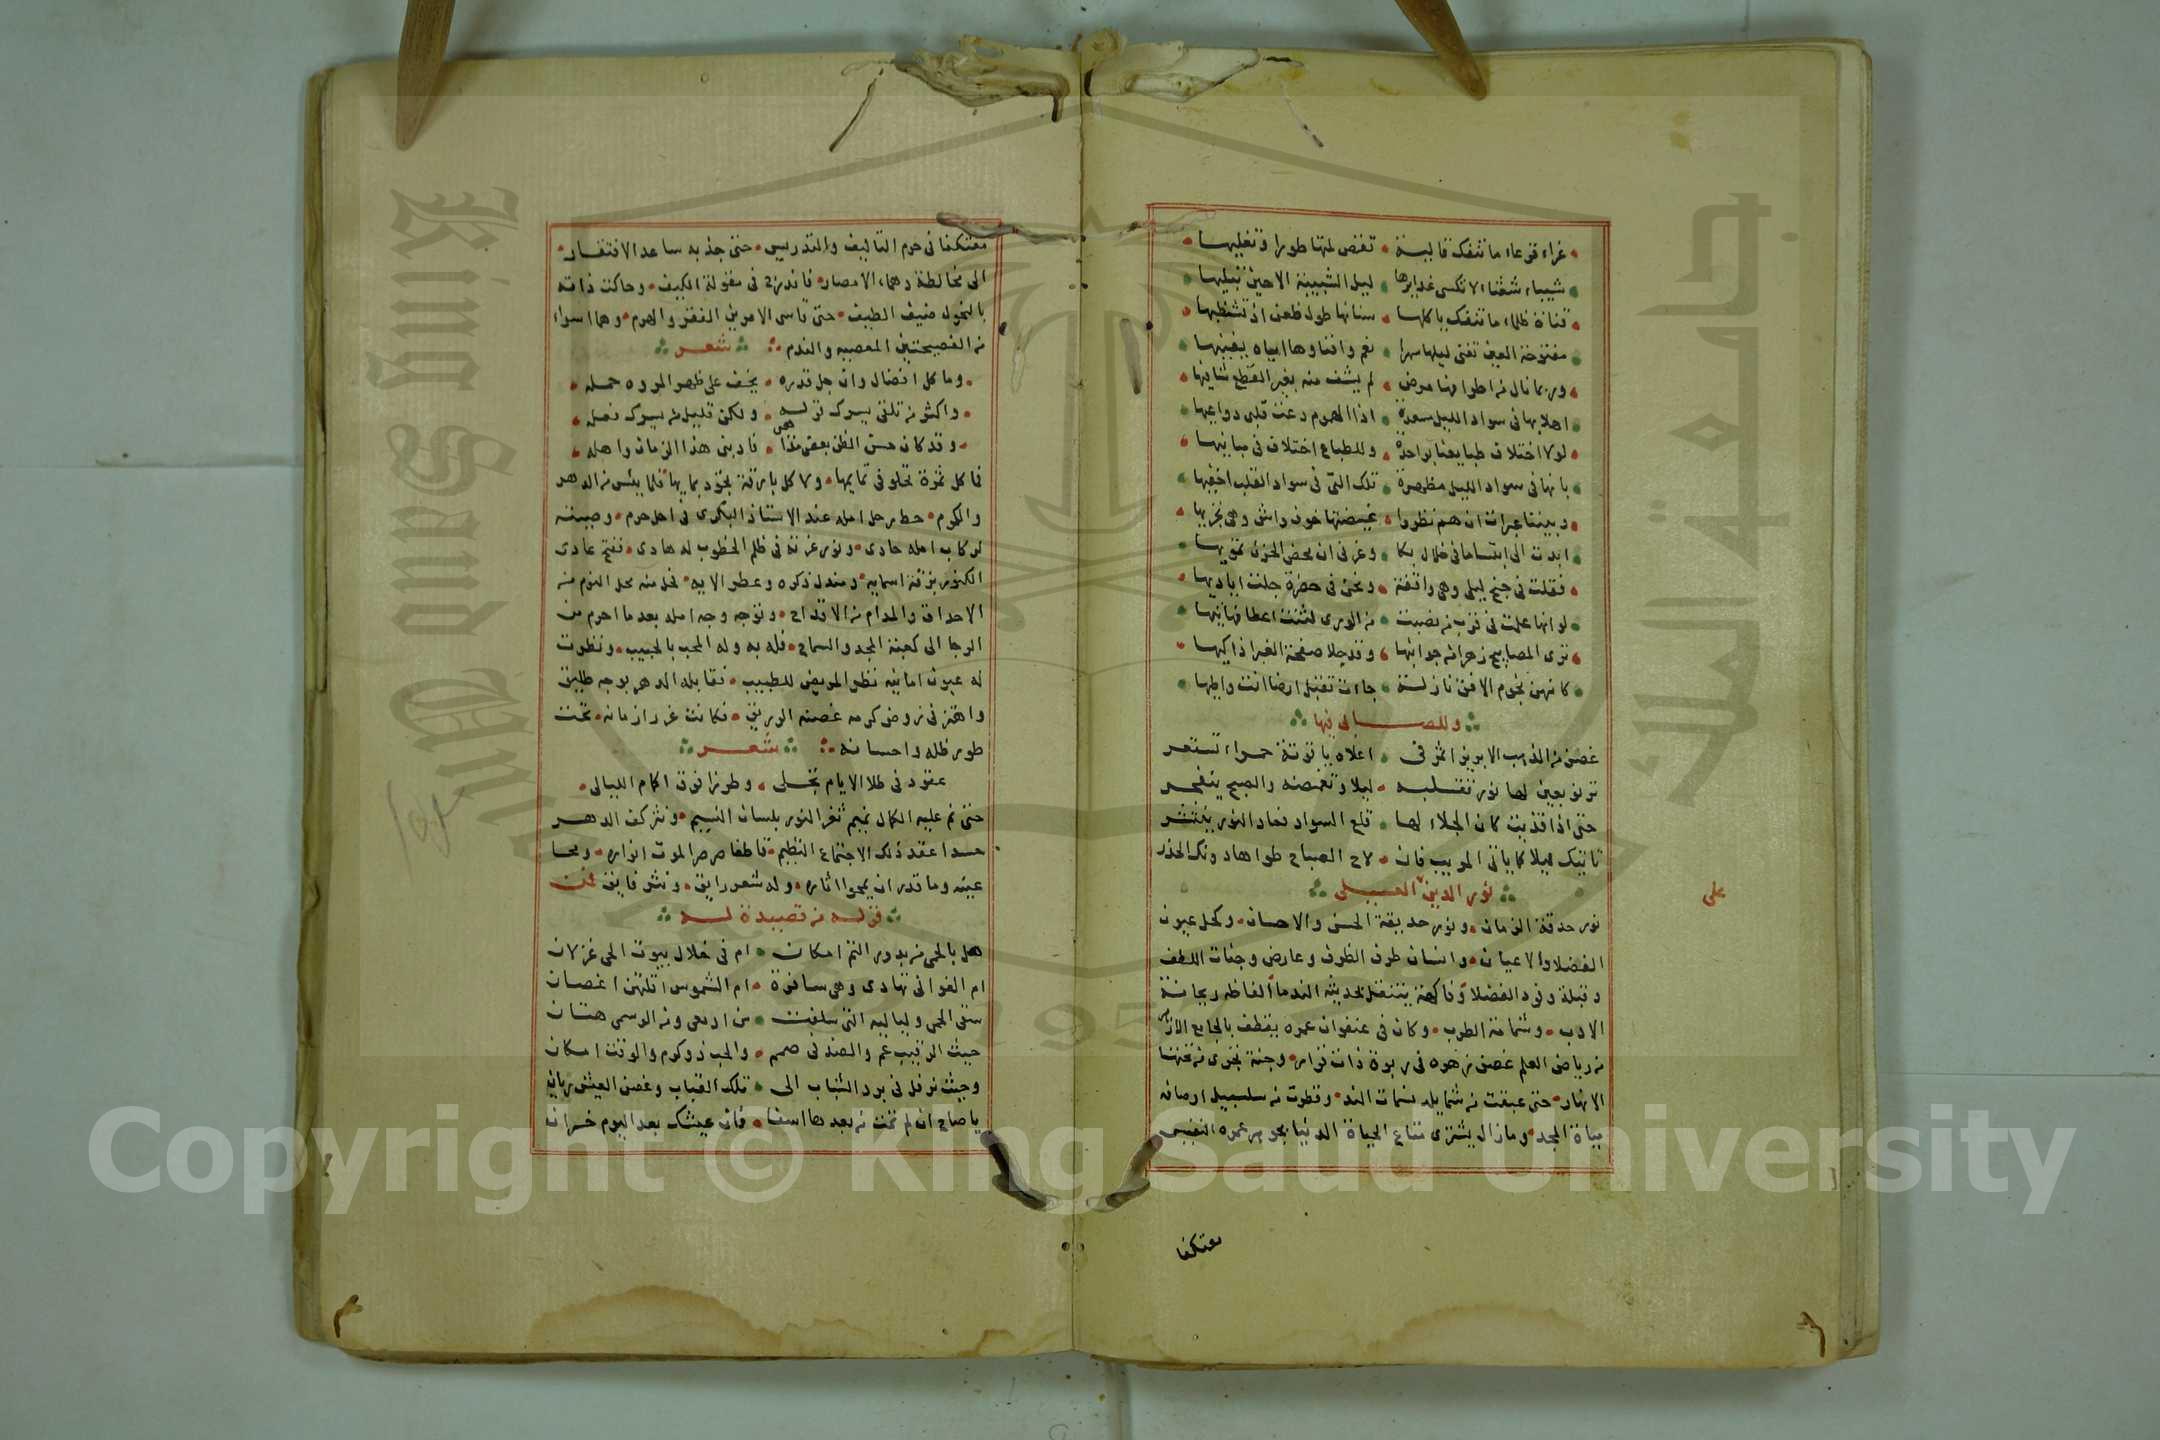 غراء فرعاء ما تنفك قالبة • تقص لمتها طورا وتفليها
شيباء شعثا لا تكسى غدايرها • ليل الشبيبة الا حين تبليها
قناة ظلماء ما تنفك باكلها • سنانها طول طعن اذ تشظيها
مفتوحة العين تفنى ليلها سهرا • نعم وافناوها اياه يفنيها
وربما نال من اطرافها مرض • لم يشف منه بغير القطع شافيها
اهلا بها في سواد الليل مسعدة • اذا الهموم دعت قلبي دواعيها
لولا اختلاف طبايعنا بواحدة • وللطباع اختلاف في مبانيها
بانها في سواد الليل مظهرة • تلك التي في سواد القلب اخفيها
وبيننا عبرات ان هم نظروا • غيضتها خوف واش وهي تجريها
ابدت الى ابتساما في خلال بكا • وعزتى ان محض الحزن تمويها
فقلت في جنح ليلى وهي واقفة • ونحن في حضرة جلت اياديها
لو انها علمت في قرب من نصبت • من الورى لثنت اعطافها تيها
ترى المصابيح زهرا من جوانبها • وقد جلا صفحة الغبراذاكيها
كانهن نجوم الافق نازلة • جات تقبل ارضا انت واطيها
وللصابى فيها
غصن من الذهب الابريز اثمر فى • اعلاه ياقوتة حمراء تستعر
ترنو بعين لها نور تقلبه • ليلا وتغمضه والصبح ينفجر
حتى اذا قذيت كان الجلاء لها • قلع السواد فعاد النور ينتشر
تاتيك ليلا كما ياتى المريب فان • لاح الصباح طواها دونك الحذر
نور الدين العسيلى
على
نور حدقة الزمان • ونور حديقة الحسن والاحسان • وكحل عيون
الفضلا والاعيان • وانسان طرف الظرف وعارض وجنات اللطف
وقبلة وفود الفضلا وفاكهة يتنقل بحديثه الندما الفاظه ريحانة
الادب • وشمامة الطرب • وكان في عنفوان عمره يقطف بالجامع الازهر
من رياض العلم غصن زهره في ربوة ذات قرار • وجنة تجرى من تحتها
الانهار • حتى عبقت من شمايله نسمات الند • وقطرت من سلسبيل اوصافه
مياه المجد • ومازال يشترى متاع الحياة الدنيا بجوهر عمره النفيس
معتكفا
معتكفا في حرم التاليف والتدريس • حتى جذبه ساعد الافتقار •
الى مخالطة دهماء الامصار • فاندرج في مقولة الكيف • وحاكت ذاته
بالنحول ضيف الطيف • حتى قاسى الامرين الفقر والهرم • وهما اسواء
من الفصيحتين المعصيه والندم شعر
• وما كل افضال وان جل قدره • يخف على ظهر المروه حمله •
• واكثر من تلقى يسرك قوله • ولكن قليل من يسرك فعله •
• وقد كان حسن الظن بعض مذاهبى • فادبنى هذا الزمان واهله •
فما كل ثمرة تحلو في تمايمها • ولا كل بارقة تجود بمايها فلما يئس من الدهر
والكرم • حط رحل امله عند الاستاذ البكرى في اجل حرم • وصيته
لركاب امله حادى • ونور غرته في ظلم الخطوب له هادى • ففتح عادى
الكنوز برقة اسمايه • ومندل ذكره وعطر الايه • فحل منه محل النوم من
الاحداق والمدام من الاقداح • وتوجه وجه امله بعد ما احرم من
الرجا الى كعبة المجد والسماح • فله به وله المحب بالحبيب • ونظرت
له عيون امانيه نظر المريض للطبيب • فقابله الدهر بوجه طليق
واهتز في روض كرمه غصنه الوريق • فكانت غرر ازمانه • تحت
طور ظله واحسانه شعر
عقود في طلا الايام تجلى • وطرزا فوق اكمام الليالى •
حتى نم عليه الكمال نميم ثغر النور بلسان النسيم • ونثر كف الدهر
حسدا عقد ذلك الاجتماع النظيم • فاطفا صرصر الموت انواره • ومحا
عينه وما قدر ان يمحوا اثاره • وله شعر رايق • ونثر فايق فمن
قوله من قصيدة له
هل بالحمى من بدور التم امكان • ام في خلال بيوت الحى غزلان
ام الغوانى تهادى وهي سافرة • ام الشموس اقلتهن اغصان
سقى الحمى ولياليه التي سلفت • من ادمعى ومن الوسمى هتان
حيث الرقيب عم والصد في صمم • والحب ذو كرم والوقت امكان
وحيث نرفل في برد الشباب الى • تلك القباب وغصن العيش ريان
ياصاح ان لم تمت من بعدها اسفا • فان عيشك بعد اليوم خسران
Copyright © King Saud University